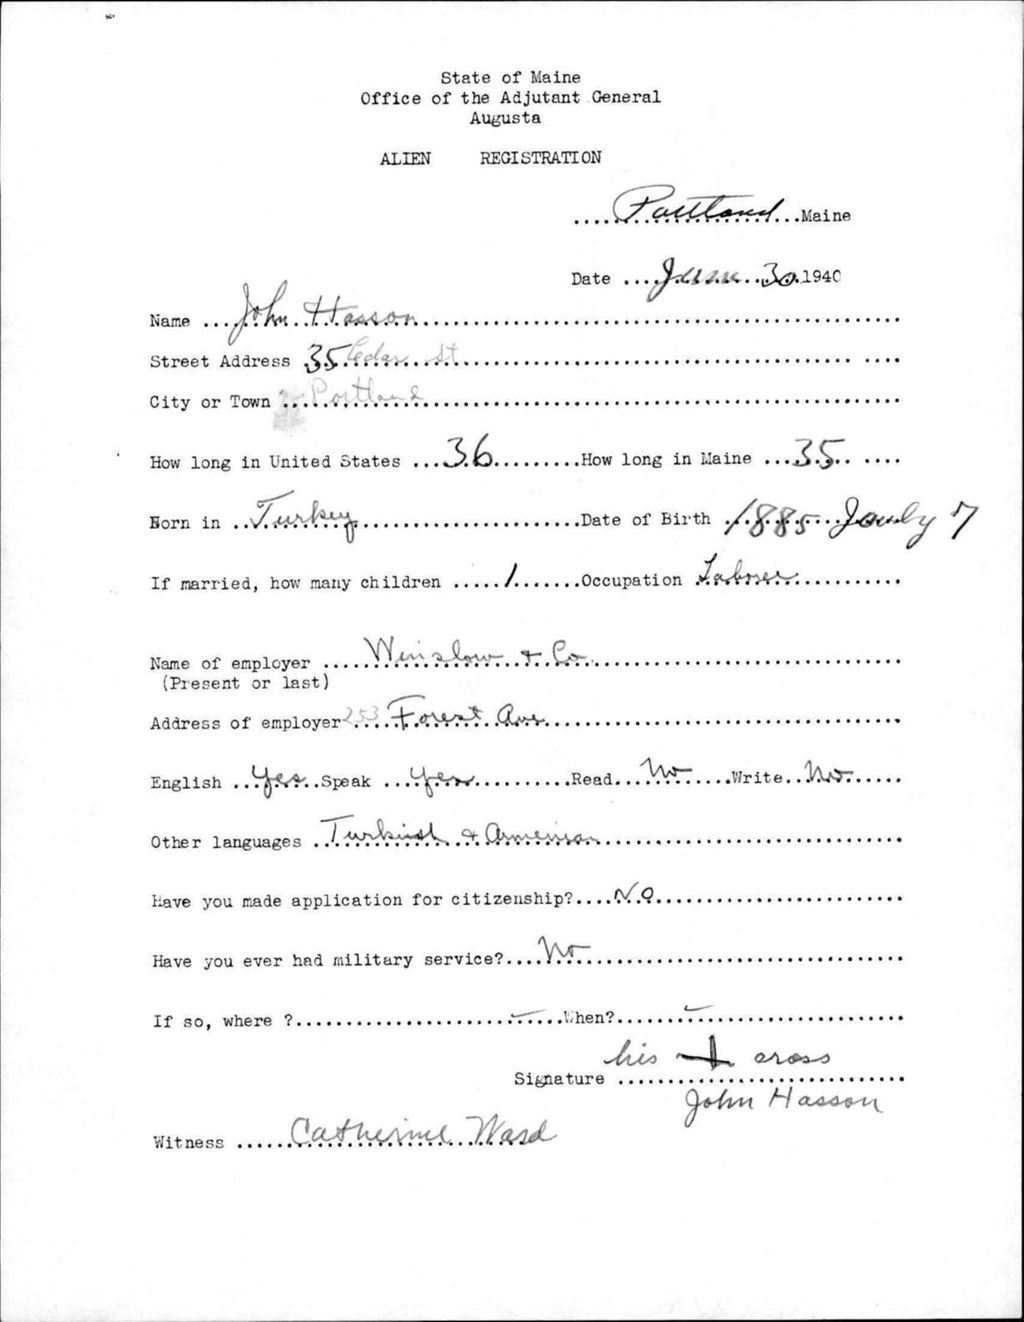 State of Maine
Office of the Adjutant General
Augusta
ALIEN REGISTRATION
Portland Maine
Date June 30 1940
Name John Hasson
Street Address 35 Cedar St
City or Town Portland
How long in United States 36 How long in Maine 35
Born in Turkey Date of Birth 1885 7
If married, how many children 1 Occupation Laborer
Name of employer Winslow + Co.
(Present or last)
Address of employer 253 Forest Ave
English Yes Speak Yes Read No Write No
Other languages Turkish + Armenian
Have you made application for citizenship? No
Have you ever had military service? No
If so, where ? When?
his + cross
Signature
John Hasson
Witness Catherine Ward